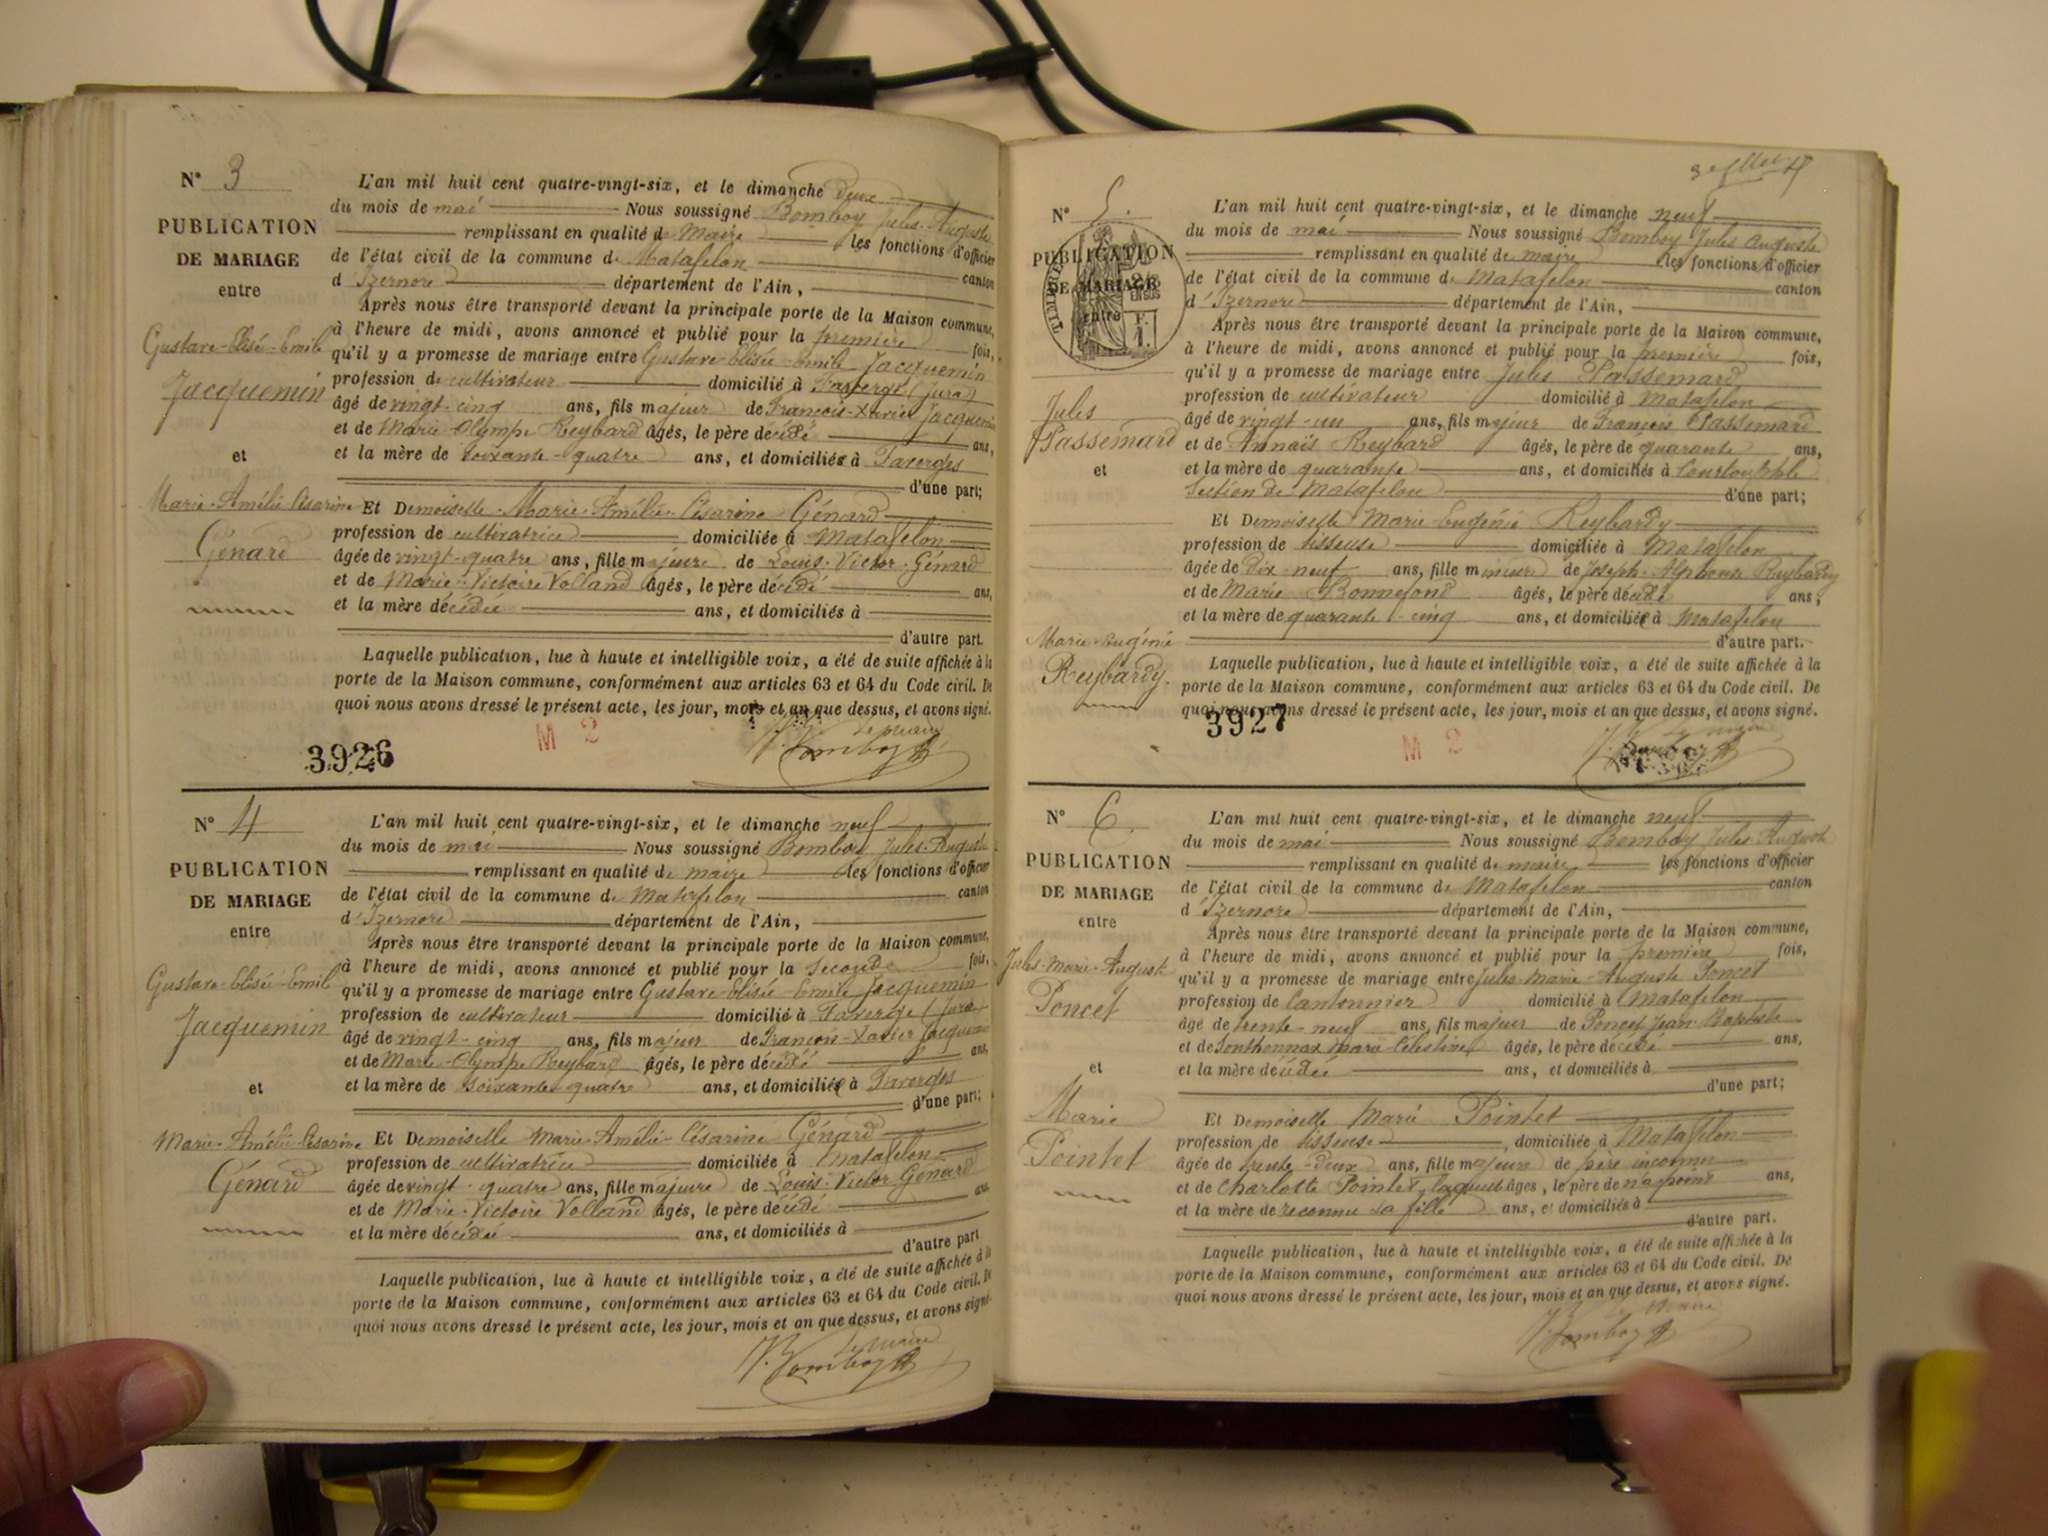 N° 3
PUBLICATION
DE MARIAGE
entre
Gustave-Elisé-Emile
Jacquemin
et
Marie-Amélie Césarine
Génard
L'an mil huit cent quatre-vingt-six, et le dimanche deux
du mois de mai Nous soussigné Bomboy Jules-Auguste
remplissant en qualité de Maire les fonctions d'officier
de l'état civil de la commune de Matafelon canton
d'Izernore département de l'Ain,
Après nous être transporté devant la principale porte de la Maison commune,
à l'heure de midi, avons annoncé et publié pour la première fois,
qu'il y a promesse de mariage entre Gustave Elisée-Emile Jacquemin
profession de cultivateur domicilié à (Jura)
âgé de vingt-cinq ans, fils majeur de François-Xavier Jacquemin
et de Marie Olympe Reybard âgés, le père décédé ans,
et la mère de soixante-quatre ans, et domiciliés à Taverges
d'une part;
Et Demoiselle Marie-Amélie-Césarine Génard
profession de cultivatrice domiciliée à Matafelon
âgée de vingt-quatre ans, fille majeure de Louis-Victor-Génard
et de Marie-Victoire Volland âgés, le père décédé ans,
et la mère décédée ans, et domiciliés à
d'autre part.
Laquelle publication, lue à haute et intelligible voix, a été de suite affichée à la
porte de la Maison commune, conformément aux articles 63 et 64 du Code civil. De
quoi nous avons dressé le présent acte, les jour, mois et an que dessus, et avons signé.
Le maire
J. Bomboy
3926
M 2
N° 4
PUBLICATION
DE MARIAGE
entre
Gustave-Elisé-Emile
Jacquemin
et
Marie-Amélie-Césarine
Génard
L'an mil huit cent quatre-vingt-six, et le dimanche neuf
du mois de mai Nous soussigné Bomboy Jules-Auguste
remplissant en qualité de maire les fonctions d'officier
de l'état civil de la commune de Matafelon canton
d'Izernore département de l'Ain,
Après nous être transporté devant la principale porte de la Maison commune,
à l'heure de midi, avons annoncé et publié pour la seconde fois,
qu'il y a promesse de mariage entre Gustave-Elisée-Emile Jacquemin
profession de cultivateur domicilié à Taverge (Jura
âgé de vingt-cinq ans, fils majeur de François-Xavier Jacquemin
et de Marie-Olympe Reybard âgés, le père décédé ans,
et la mère de soixante quatre ans, et domiciliés à Taverges
d'une part;
Et Demoiselle Marie-Amélie-Césarine Génard
profession de cultivatrice domiciliée à Matafelon
âgée de vingt-quatre ans, fille majeure de Louis-Victor Génard
et de Marie-Victoire Volland âgés, le père décédé ans,
et la mère décédée ans, et domiciliés à
d'autre part
Laquelle publication, lue à haute et intelligible voix, a été de suite affichée à la
porte de la Maison commune, conformément aux articles 63 et 64 du Code civil. De
quoi nous avons dressé le présent acte, les jour, mois et an que dessus, et avons signé.
Le maire
J. Bomboy
N° 5.
PUBLICATION
DE MARIAGE
entre
Jules
Passemard
et
Marie-Eugénie
Reybardy.
L'an mil huit cent quatre-vingt-six, et le dimanche neuf
du mois de mai Nous soussigné Bomboy Jules Auguste
remplissant en qualité de maire les fonctions d'officier
de l'état civil de la commune de Matafelon canton
d'Izernore département de l'Ain,
Après nous être transporté devant la principale porte de la Maison commune,
à l'heure de midi, avons annoncé et publié pour la première fois,
qu'il y a promesse de mariage entre Jules Passemard
profession de cultivateur domicilié à Matafelon
âgé de vingt-un ans, fils majeur de François Passemard
et de Annaïs Reybard âgés, le père de quarante ans,
et la mère de quarante ans, et domiciliés à
Section de Matafelon d'une part;
Et Demoiselle Marie Eugénie Reybardy
profession de tisseuse domiciliée à Matafelon
âgée de Dix-neuf ans, fille mineure de Joseph-Alphonse Reybardy
et de Marie Bonnefond âgés, le père décédé ans;
et la mère de quarante-cinq ans, et domiciliés à Matafelon
d'autre part.
Laquelle publication, lue à haute et intelligible voix, a été de suite affichée à la
porte de la Maison commune, conformément aux articles 63 et 64 du Code civil. De
quoi nous avons dressé le présent acte, les jour, mois et an que dessus, et avons signé.
Le maire
J. Bomboy
3927
M 2
N° 6
PUBLICATION
DE MARIAGE
entre
Jules-Marie-Auguste
Poncet
et
Marie
Pointet
L'an mil huit cent quatre-vingt-six, et le dimanche neuf
du mois de mai Nous soussigné Bomboy Jules Auguste
remplissant en qualité de maire les fonctions d'officier
de l'état civil de la commune de Matafelon canton
d'Izernore département de l'Ain,
Après nous être transporté devant la principale porte de la Maison commune,
à l'heure de midi, avons annoncé et publié pour la première fois,
qu'il y a promesse de mariage entre Jules-Marie-Auguste Poncet
profession de Cantonnier domicilié à Matafelon
âgé de trente-neuf ans, fils majeur de Poncet Jean-Baptiste
et de Sonthonnax Marie Célestine âgés, le père décédé ans,
et la mère décédée ans, et domiciliés à
d'une part;
Et Demoiselle Marie Pointet
profession de tisseuse domiciliée à Matafelon
âgée de trente-deux ans, fille majeure de père inconnu
et de Charlotte Pointet, laquelle âgés, le père de n'a point ans,
et la mère de reconnu sa fille ans, et domiciliés à
d'autre part.
Laquelle publication, lue à haute et intelligible voix, a été de suite affichée à la
porte de la Maison commune, conformément aux articles 63 et 64 du Code civil. De
quoi nous avons dressé le présent acte, les jour, mois et an que dessus, et avons signé.
Le Maire
J. Bomboy